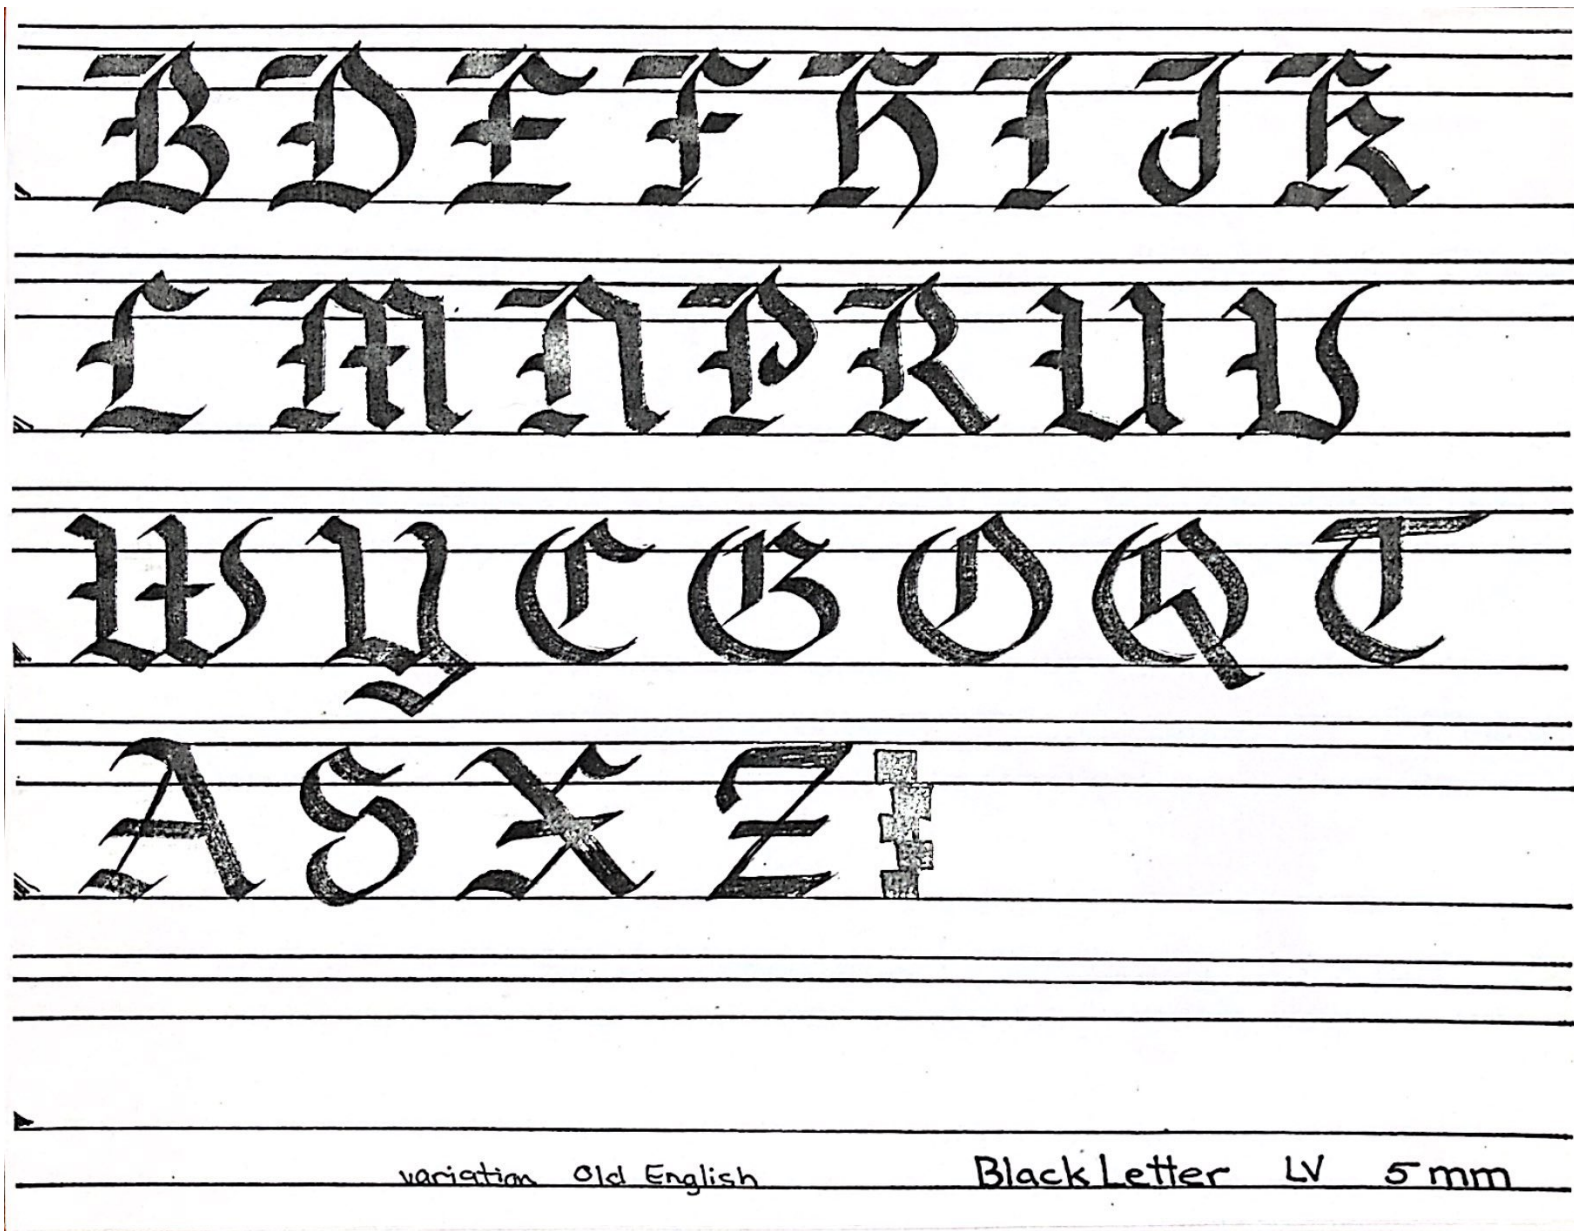 B D E F H I J K
L M N P R U V
W Y C G O Q T
A S X Z
variation Old English Black Letter LV 5 mm